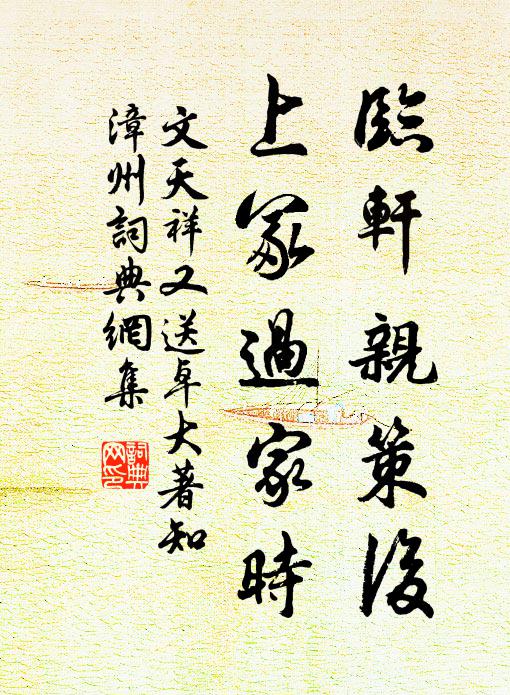 臨軒親策後
上冢過家時
文天祥又送卓大著知
漳州詞典網集
詞典網印